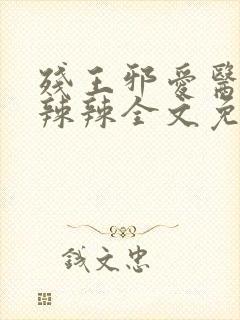 残王邪爱醫
辣辣全文免
钱文忠